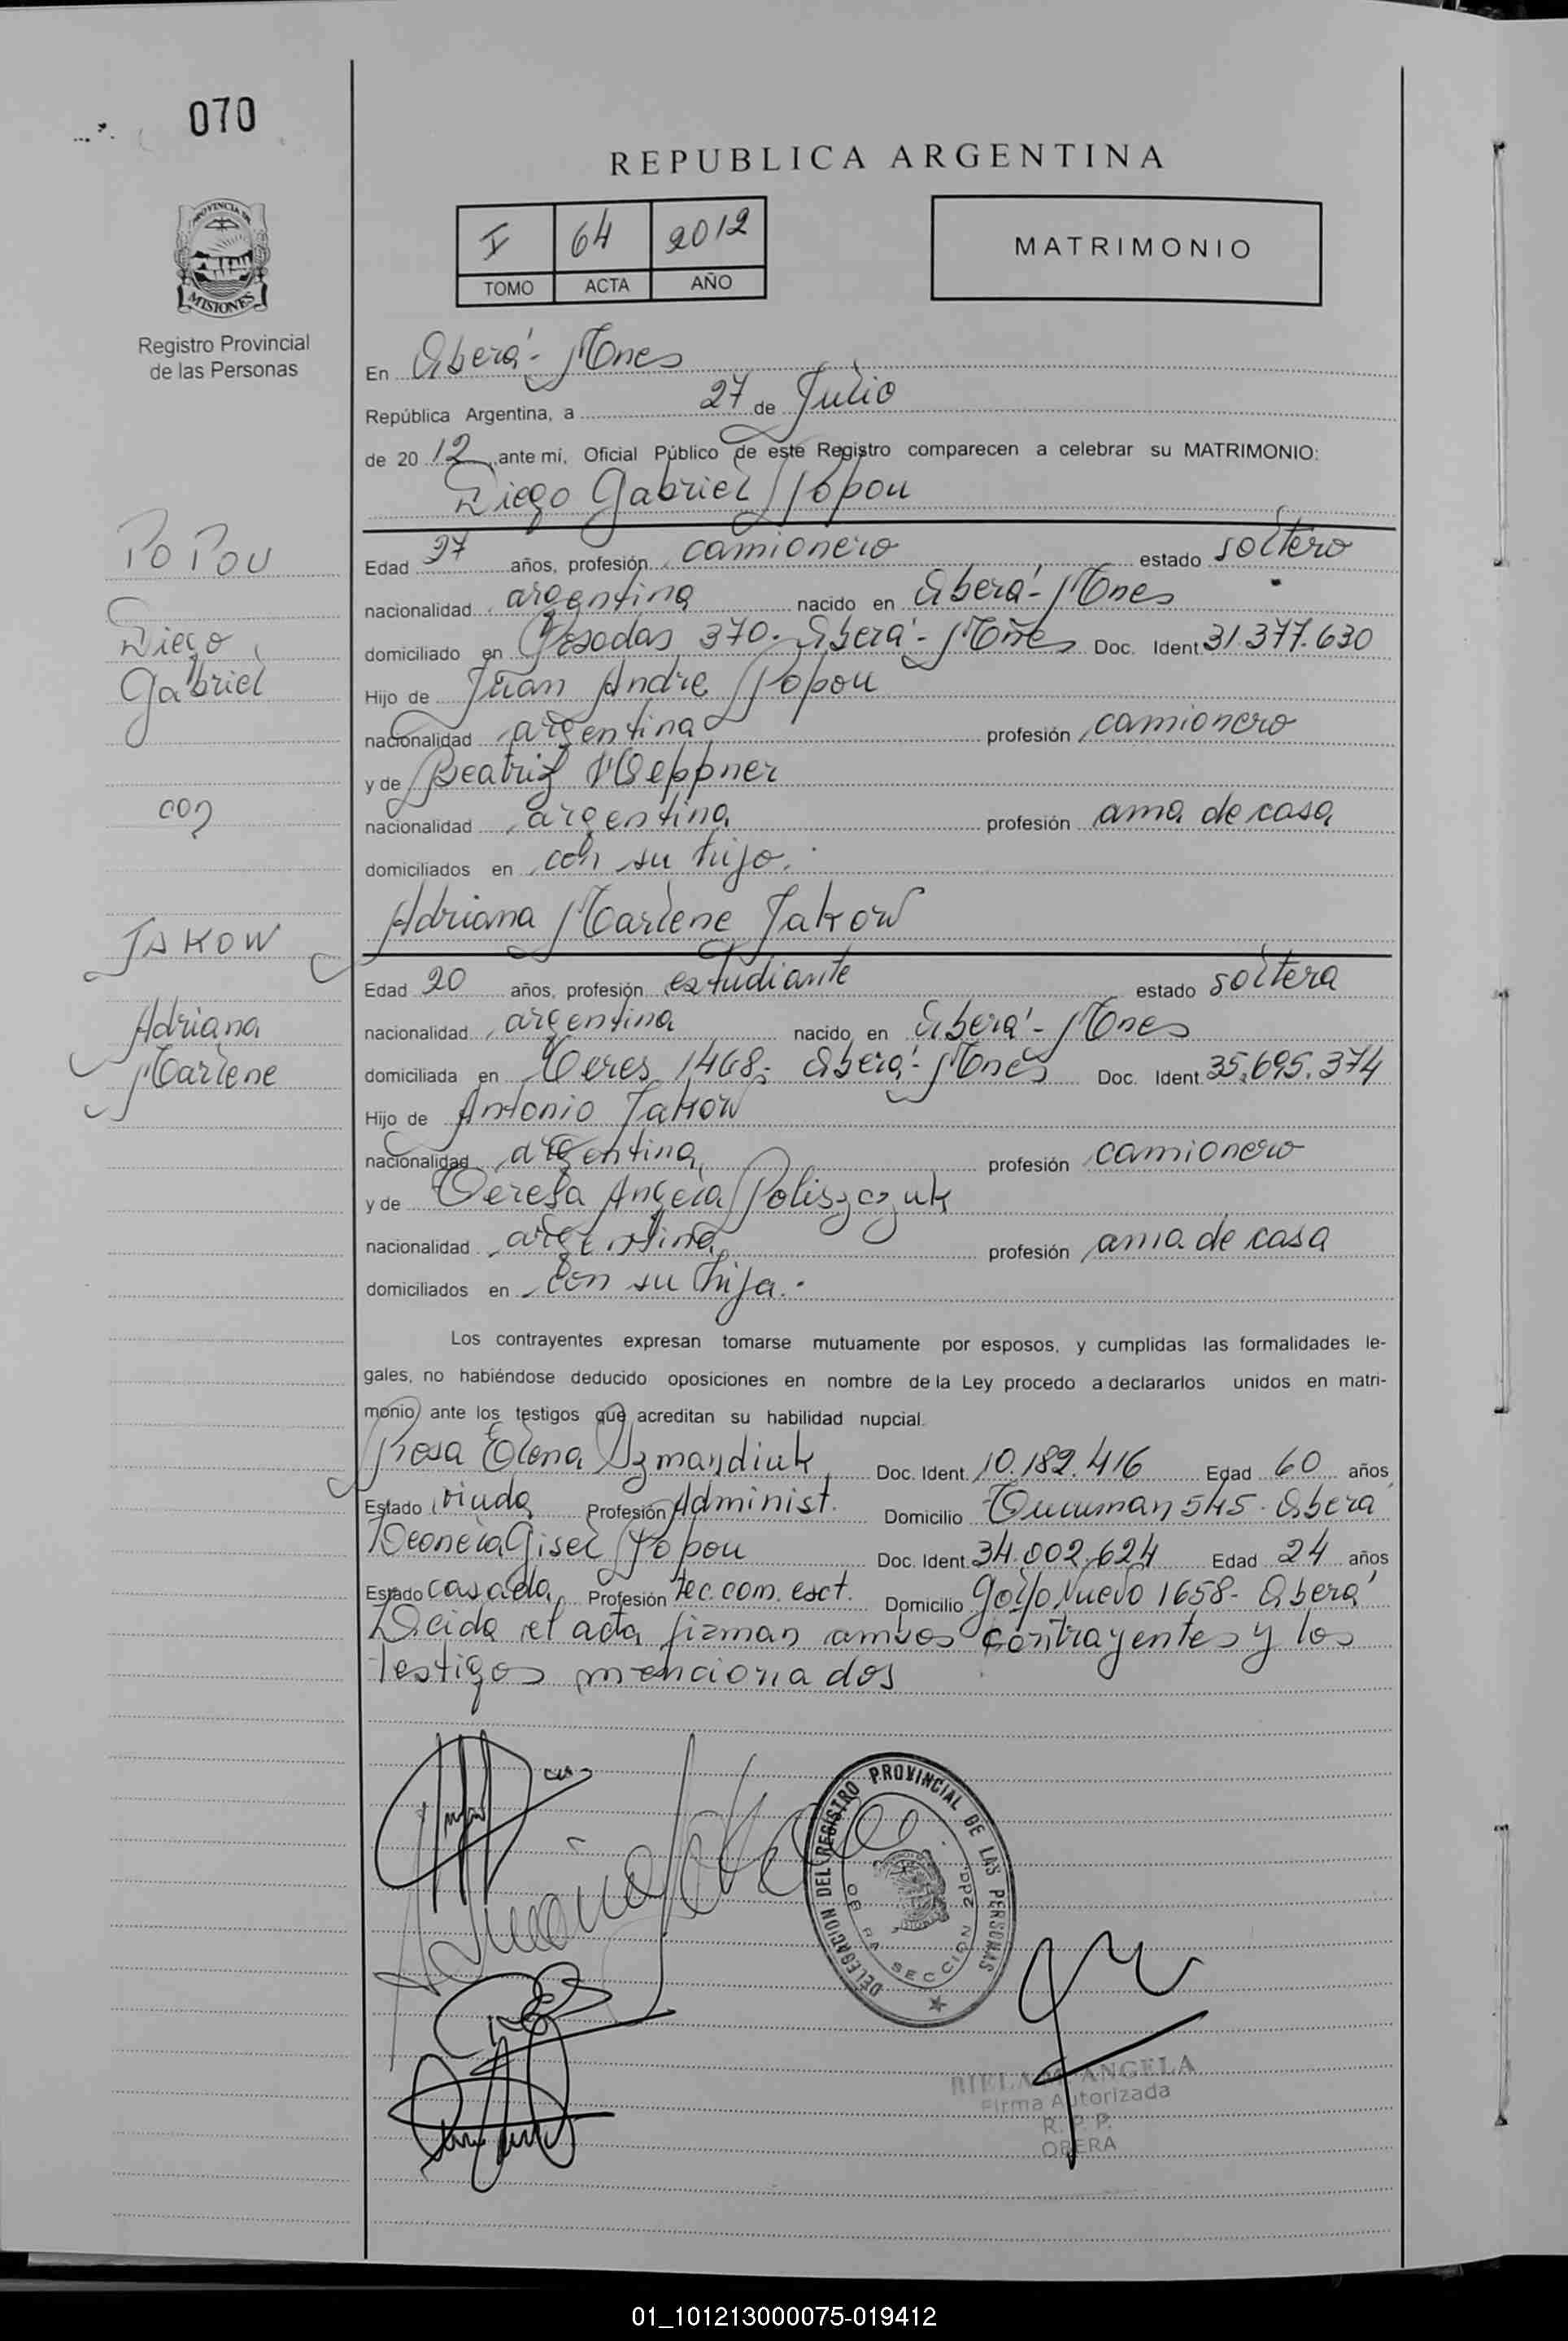 070
PROVINCIA DE
MISIONES
Registro Provincial
de las Personas
REPUBLICA ARGENTINA
I 64 2012
TOMO ACTA AÑO
MATRIMONIO
En Oberá - Mnes
República Argentina, a 27 de Julio
de 2012 ante mí, Oficial Público de este Registro comparecen a celebrar su MATRIMONIO:
Diego Gabriel Popou
POPOU
Diego
Gabriel
con
JAKOW
Adriana
Marlene
Edad 27 años, profesión camionero estado soltero
nacionalidad argentina nacido en Oberá - Mnes
domiciliado en Posadas 370 - Oberá - Mnes Doc. Ident. 31.377.630
Hijo de Juan Andre Popou
nacionalidad argentina profesión camionero
y de Beatriz
nacionalidad argentina profesión ama de casa
domiciliados en con su hijo.
Adriana Marlene Jakow
Edad 20 años, profesión estudiante estado soltera
nacionalidad argentina nacido en Oberá - Mnes
domiciliada en 1468 - Oberá - Mnes Doc. Ident. 35.695.374
Hijo de Antonio Jakow
nacionalidad argentina profesión camionero
y de Teresa Angela Poliszczuk
nacionalidad argentina profesión ama de casa
domiciliados en con su hija.
Los contrayentes expresan tomarse mutuamente por esposos, y cumplidas las formalidades le-
gales, no habiéndose deducido oposiciones en nombre de la Ley procedo a declararlos unidos en matri-
monio ante los testigos que acreditan su habilidad nupcial.
Rosa Elena Doc. Ident. 10.182.416 Edad 60 años
Estado viuda Profesión Administ. Domicilio Tucuman 545 - Oberá
Leonela Gisel Popou Doc. Ident. 34.002.624 Edad 24 años
Estado casada Profesión tec. com. ext. Domicilio Golfo Nuevo 1658 - Oberá
Leida el acta firman ambos contrayentes y los
testigos mencionados
DELEGACION DEL REGISTRO PROVINCIAL DE LAS PERSONAS
OBERA SECCION 2da.
ANGELA
Firma Autorizada
R. P. P.
OBERA
01_101213000075-019412